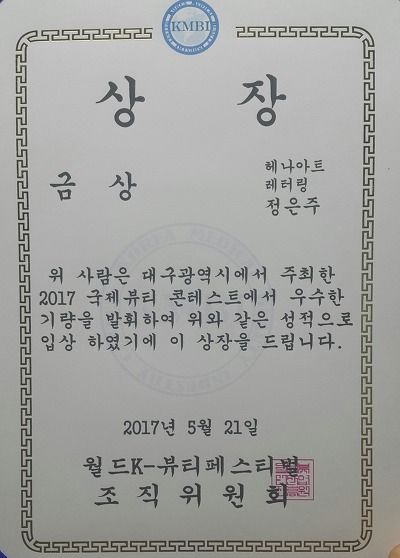 KMBI
상 장
금 상
헤나아트
레터링
정은주
위 사람은 대구광역시에서 주최한
2017 국제뷰티 콘테스트에서 우수한
기량을 발휘하여 위와 같은 성적으로
입상 하였기에 이 상장을 드립니다.
2017년 5월 21일
월드K-뷰티페스티벌
조직위원회